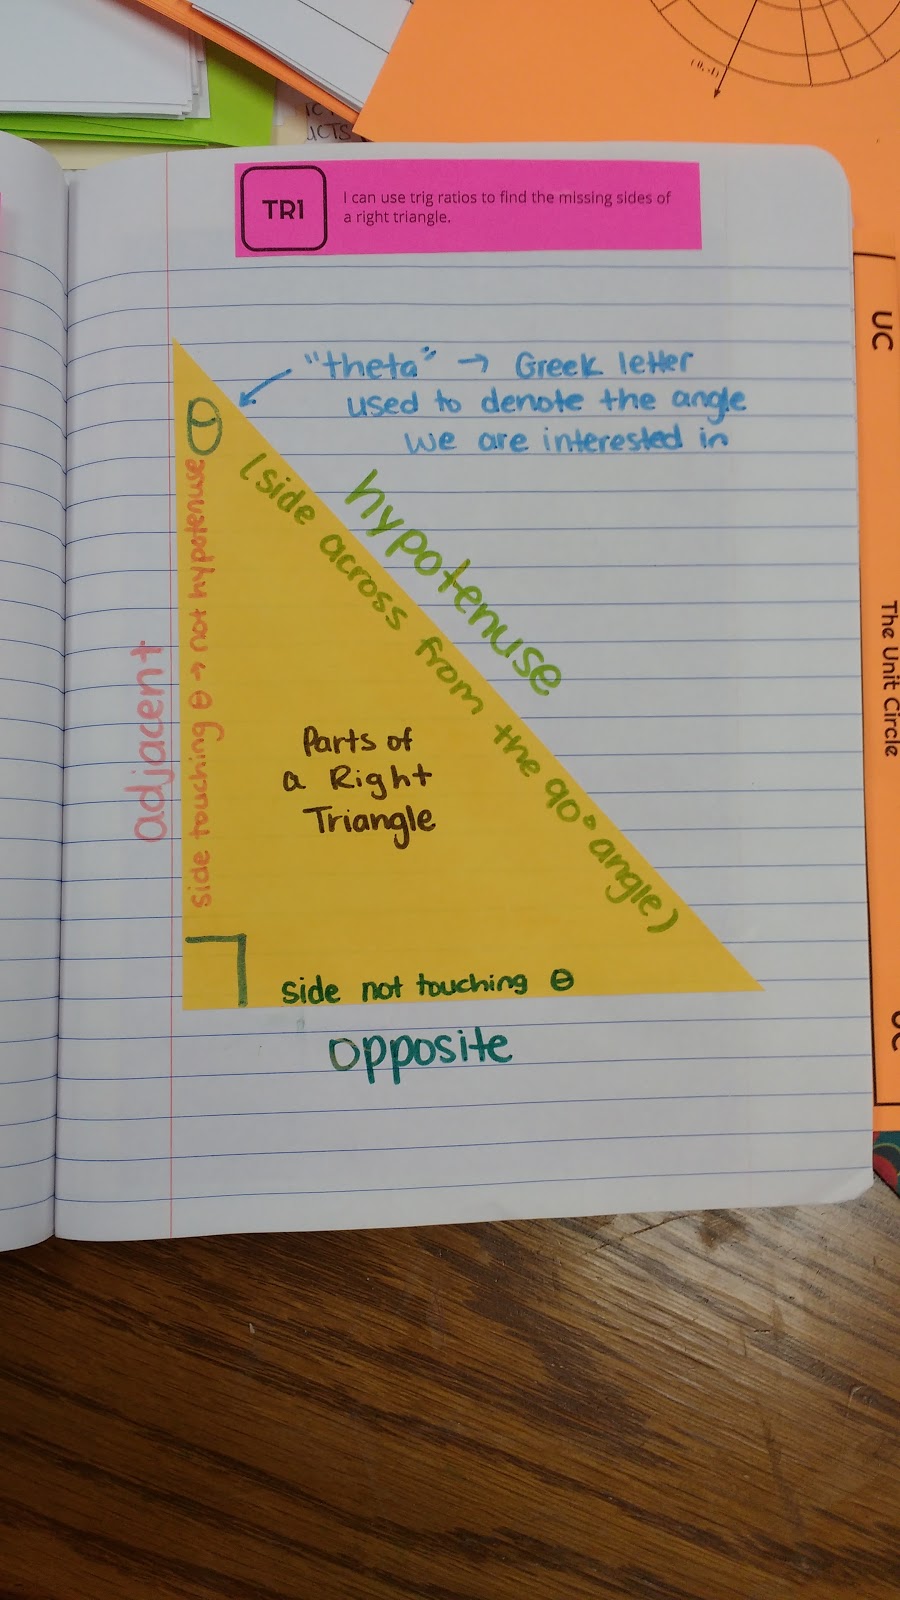 (0,-1)
UCTS
TR1
I can use trig ratios to find the missing sides of
a right triangle.
"theta" → Greek letter
used to denote the angle
we are interested in
θ
hypotenuse
(side across from the 90° angle)
adjacent
side touching θ → not hypotenuse
Parts of
a Right
Triangle
side not touching θ
opposite
UC
The Unit Circle
UC